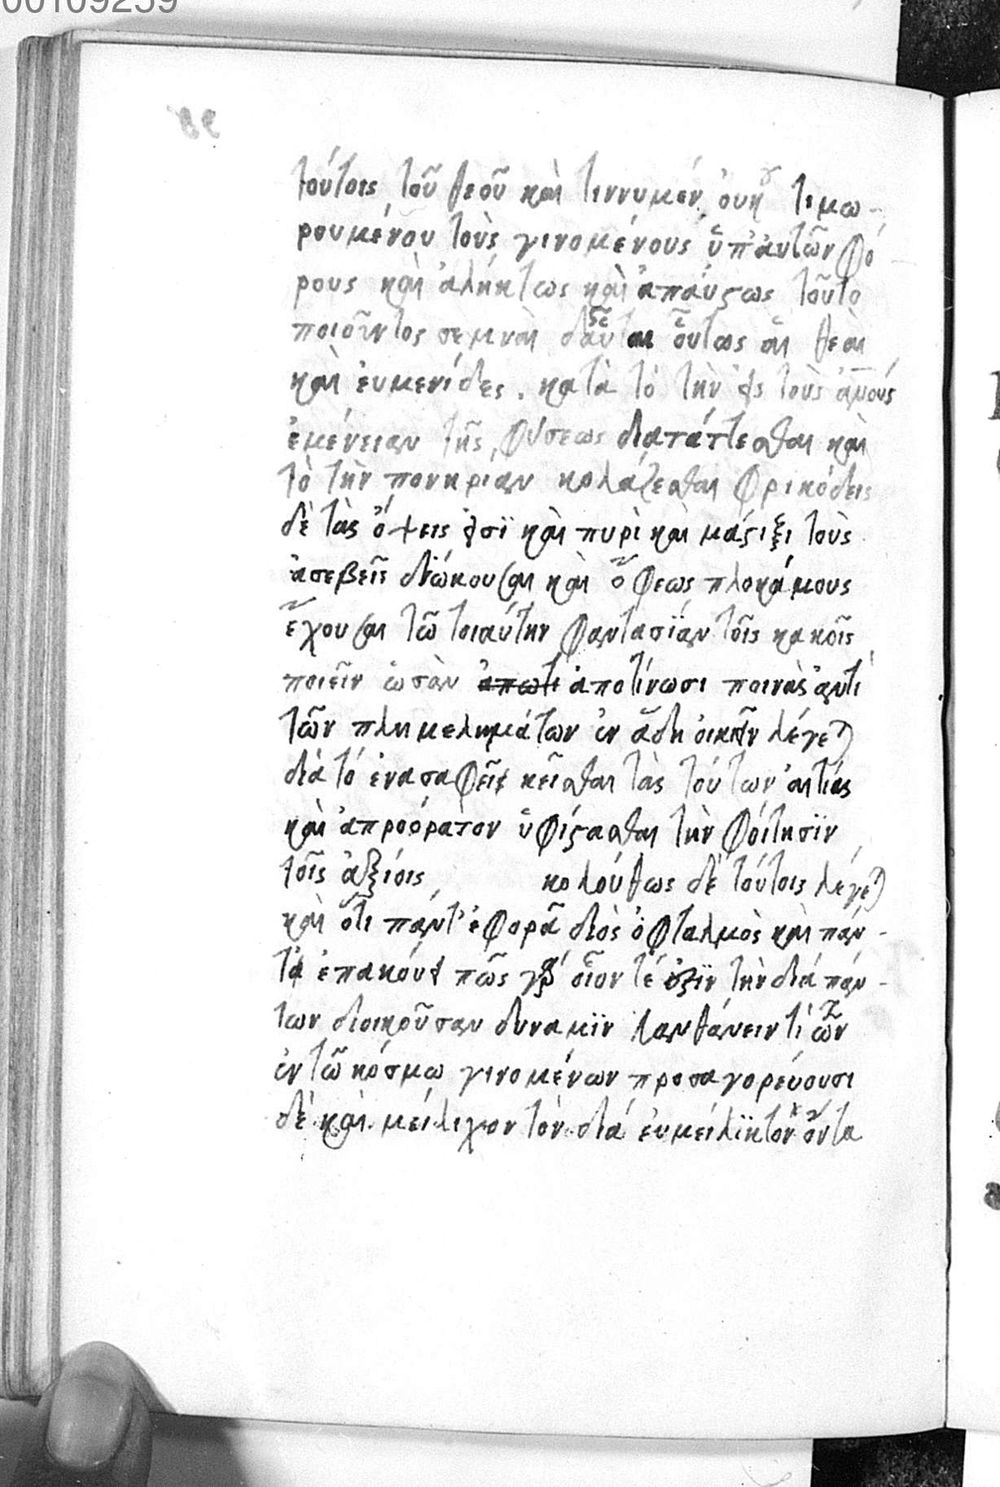 00109259
τούτοις τοῦ θεοῦ καὶ τιννυμέν οὐκ τιμω-
ρουμένου τοὺς γινομένους ὑπ' ἀυτῶν φό-
ρους καὶ ἀλήκτως καὶ ἀπαύςως τοῦτο
ποιοῦντος σεμναὶ οὕτως αἱ θεαὶ
καὶ ἐυμενίδες . κατὰ τὸ τὴν εἰς τοὺς
ἐμένειαν τῆς φύσεως διατάττεσθαι καὶ
τὸ τὴν πονηρίαν κολάζεσθαι φρικόδεις
δὲ τὰς ὄψεις καὶ πυρὶ καὶ μάςιξι τοὺς
ἀσεβεῖς διώκουσαι καὶ ὄφεως πλοκάμους
ἔχουσαι τῶ τοιαύτην φαντασΐαν τοῖς κακοῖς
ποιεῖν ἀποτίνωσι ποινὰς ἀντὶ
τῶν πλημελημάτων ἐν ἅδη οἰκεῖν λέγετ
διὰ τό ἐν ἀσαφεῖ κεῖσθαι τὰς τούτων ἀιτίας
καὶ ἀπροόρατον ὑφίςασθαι τὴν φόιτησϊν
τοῖς ἀξίοις κολούθως δὲ τούτοις λέγετ
καὶ ὅτι πάντ' ἐφορᾶ διὸς ὀφταλμὸς καὶ πάν-
τα ἐπακούει πῶς γὰρ οἷον τέ ἐςϊν τὴν διά πάν-
των διοικοῦσαν δυναμϊν λανθάνειν τὶ τῶν
ἐν τῶ κόσμω γινομένων προσαγορεύουσι
δὲ καὶ μείλιχον τὸν δία ἐυμείλϊκτον ὄντα